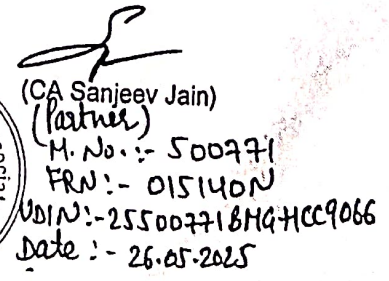 (CA Sanjeev Jain)
(Partner)
M. No. :- 500771
FRN :- 015140N
UDIN:-25500771BMGHCC9066
Date :- 26.05.2025